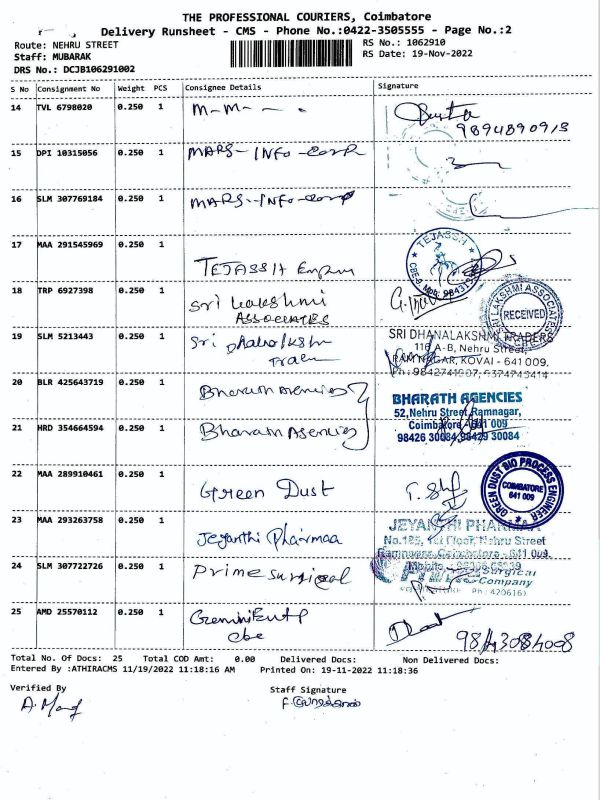 THE PROFESSIONAL COURIERS, Coimbatore
Delivery Runsheet - CMS - Phone No.:0422-3505555 - Page No.:2
Route: NEHRU STREET RS No.: 1062910
Staff: MUBARAK RS Date: 19-Nov-2022
DRS No.: DCJB106291002
S No Consignment No Weight PCS Consignee Details Signature
14 TVL 6798020 0.250 1 M-M-
9894890913
15 DPI 10315056 0.250 1 MARS-INFO-CORP
16 SLM 307769184 0.250 1 MARS-INFO-CORP
17 MAA 291545969 0.250 1 TEJASSH
TEJASSH
18 TRP 6927398 0.250 1 Sri Lakshmi
ASSOCIATES
SRI LAKSHMI ASSOCIATES
RECEIVED
19 SLM 5213443 0.250 1 Sri
SRI DHANALAKSHMI TRADERS
116 A-B, Nehru Street,
RAMNAGAR, KOVAI - 641 009.
20 BLR 425643719 0.250 1 Bharath Agencies
21 HRD 354664594 0.250 1 Bharath Agencies
BHARATH AGENCIES
52,Nehru Street,Ramnagar,
Coimbatore-641 009
98426 30084,98429 30084
22 MAA 289910461 0.250 1 Green Dust
GREEN DUST BIO PROCESS ENGINEER
COIMBATORE
641 009
23 MAA 293263758 0.250 1 Jeyanthi Pharmaa
JEYANTHI PHARMAA
No.185, 1st Floor, Nehru Street
Ramnagar, Coimbatore - 641 009.
24 SLM 307722726 0.250 1 Prime surgical
Surgical
Company
25 AMD 25570112 0.250 1
Cbe
Total No. Of Docs: 25 Total COD Amt: 0.00 Delivered Docs: Non Delivered Docs:
Entered By :ATHIRACMS 11/19/2022 11:18:16 AM Printed On: 19-11-2022 11:18:36
Verified By Staff Signature